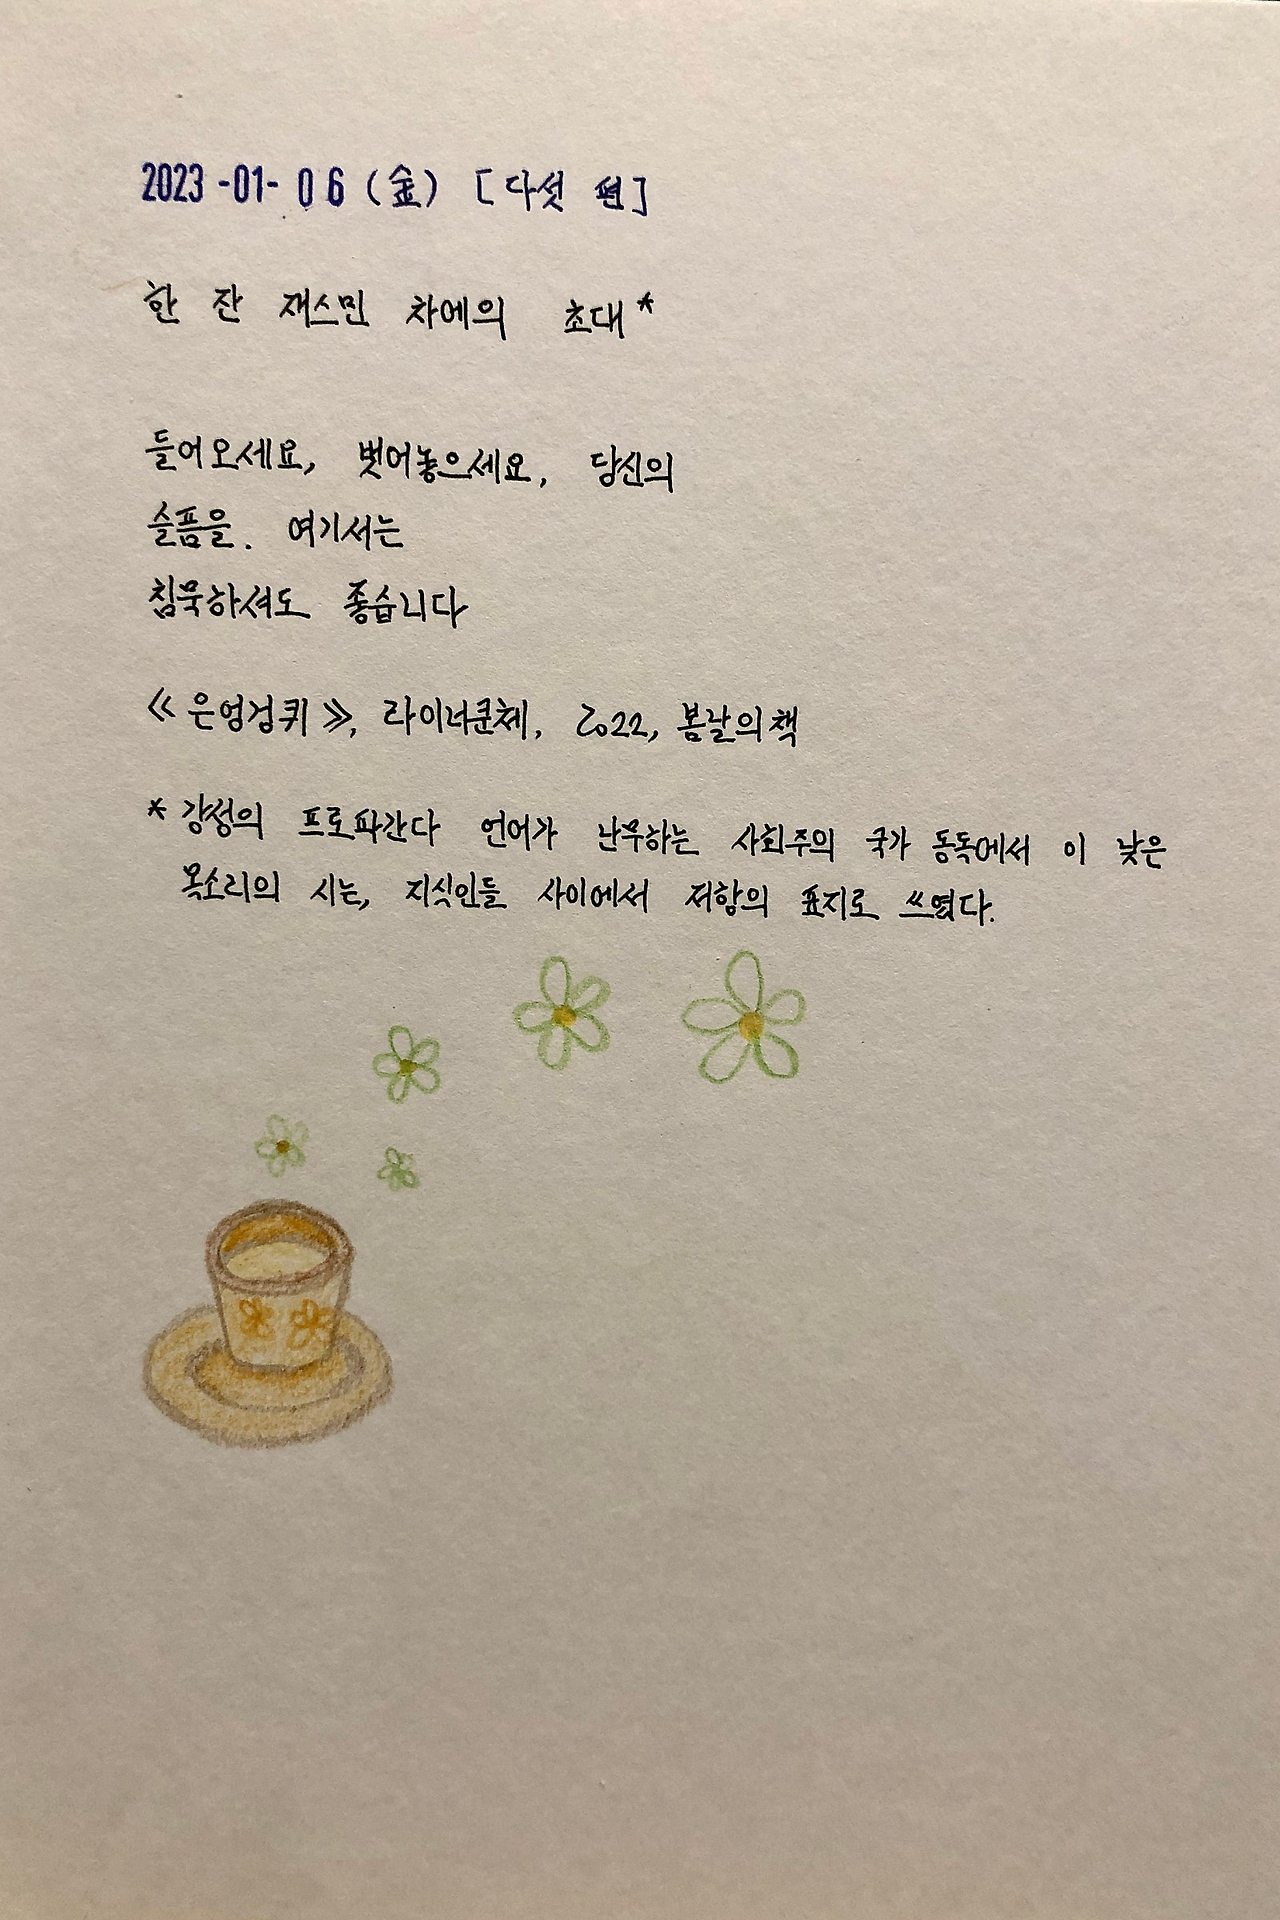 2023-01-06 (金) [다섯 편]
한 잔 재스민 차에의 초대*
들어오세요, 벗어놓으세요, 당신의
슬픔을. 여기서는
침묵하셔도 좋습니다
≪은엉겅퀴≫, 라이너쿤체, 2022, 봄날의책
* 강성의 프로파간다 언어가 난무하는 사회주의 국가 동독에서 이 낮은
목소리의 시는, 지식인들 사이에서 저항의 표지로 쓰였다.